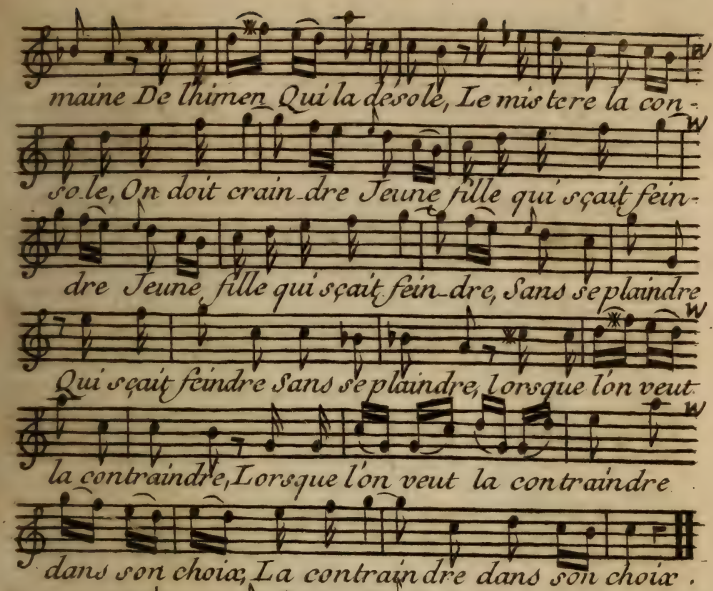 maine De lhimen Qui la desole, Le mistere la con-
sole, On doit crain-dre Jeune fille qui sçait fein-
dre Jeune fille qui sçait fein-dre, Sans se plaindre
Qui sçait feindre Sans se plaindre, lorsque l'on veut
la contraindre, Lorsque l'on veut la contraindre
dans son choix, La contraindre dans son choix.